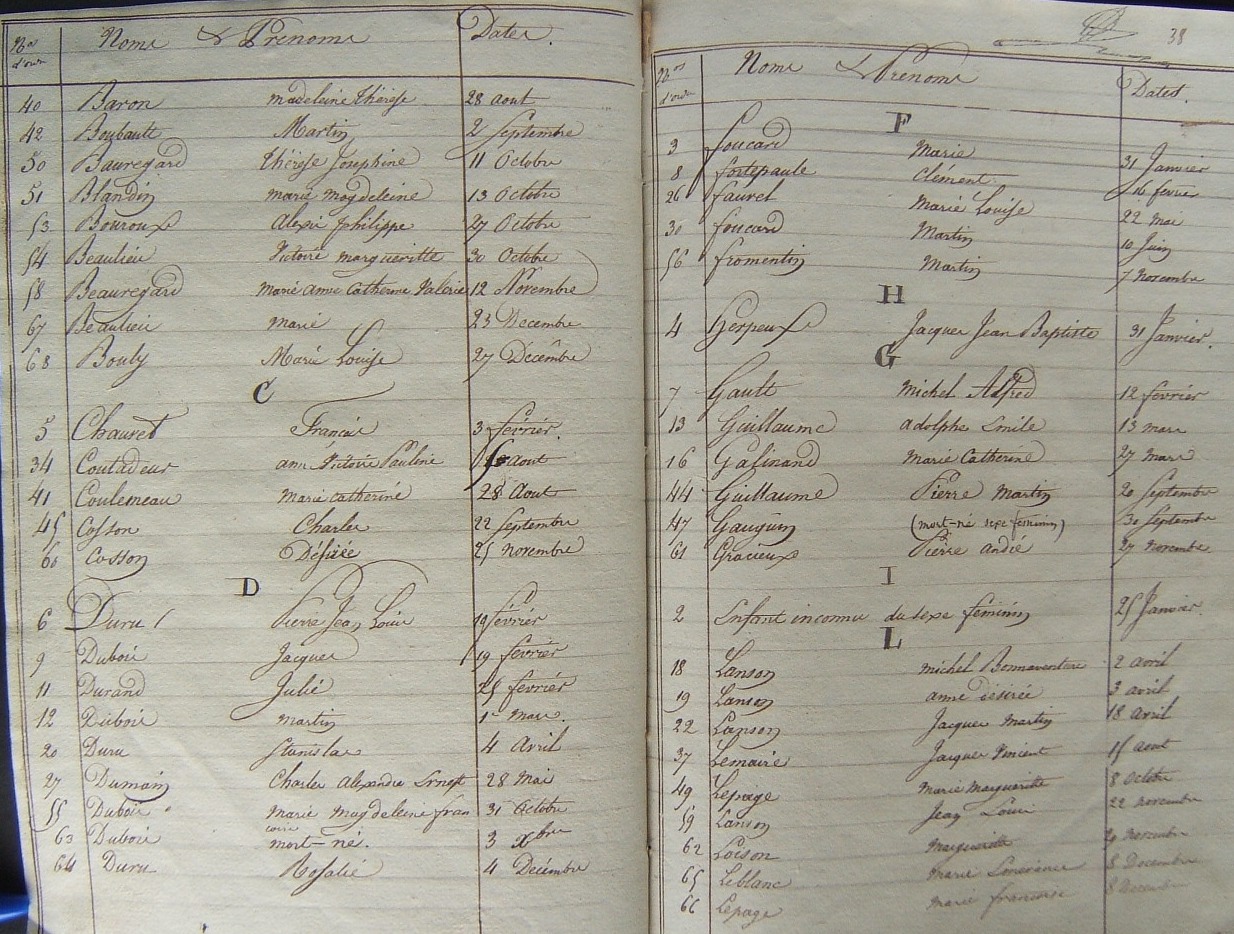 Nos d'ordre Noms & Prénoms Dates.
40 Baron madeleine thérèse 28 aout
42 Boubault Martin 2 Septembre
50 Bauregard thérèse Josephine 11 Octobre
51 Blandin marie magdeleine 13 Octobre
53 Bouroux Alexis philippe 27 Octobre
54 Beaulieu Victoire margueritte 30 Octobre
58 Beauregard Marie anne Catherine Valerie 12 Novembre
67 Beaulieu marie 23 Decembre
68 Bouly Marie Louise 27 Décembre
C
5 Chauvet François 3 février.
34 Coutadeur anne Victoire Pauline aout
41 Coulemeau Marie catherine 28 Aout
45 Cosson Charles 22 Septembre
60 Cosson Désirée 25 novembre
D
6 Duru Pierre Jean Louis février
9 Dubois Jacques 19 février
11 Durand Julie 25 février
12 Dubois martin 1er Mars.
20 Duru Stanislas 4 Avril
27 Dumain Charles Alexandre Ernest 28 Mai
55 Dubois Marie Magdeleine fran 31 Octobre
63 Dubois mort-né. 3 xbre
64 Duru Rosalie 4 Décembre
38
Nos d'ordre Noms & Prénoms Dates.
F
3 foucard Marie 31 Janvier
8 fortepaule Clément 16 fevrier
26 fauvel Marie Louise 22 mai
30 foucard Martin 10 Juin
56 fromentin Martin 7 Novembre
H
4 Herpeux Jacques Jean Baptiste 31 Janvier.
G
7 Gault Michel Alfred 12 février
13 Guillaume adolphe Emile 13 mars
16 Gasinand Marie Catherine 27 Mars
44 Guillaume Pierre Martin 20 Septembre
47 Gauguin (mort-né sexe feminin) 30 septembre
61 Gracieux Pierre andré 27 Novembre
I
2 Enfant inconnu du sexe feminin 25 Janvier
L
18 Lanson michel Bonnaventure 2 avril
19 Lanson anne désirée 3 avril
22 Lanson Jacques Martin 18 avril
37 Lemaire Jacques Vincent 15 aout
49 Lepage Marie Margueritte 8 Octobre
59 Lanson Jean Louis 22 novembre
62 Loison Margueritte 29 Novembre
65 Leblanc Marie 8 Decembre
66 Lepage Marie francoise 8 Decembre